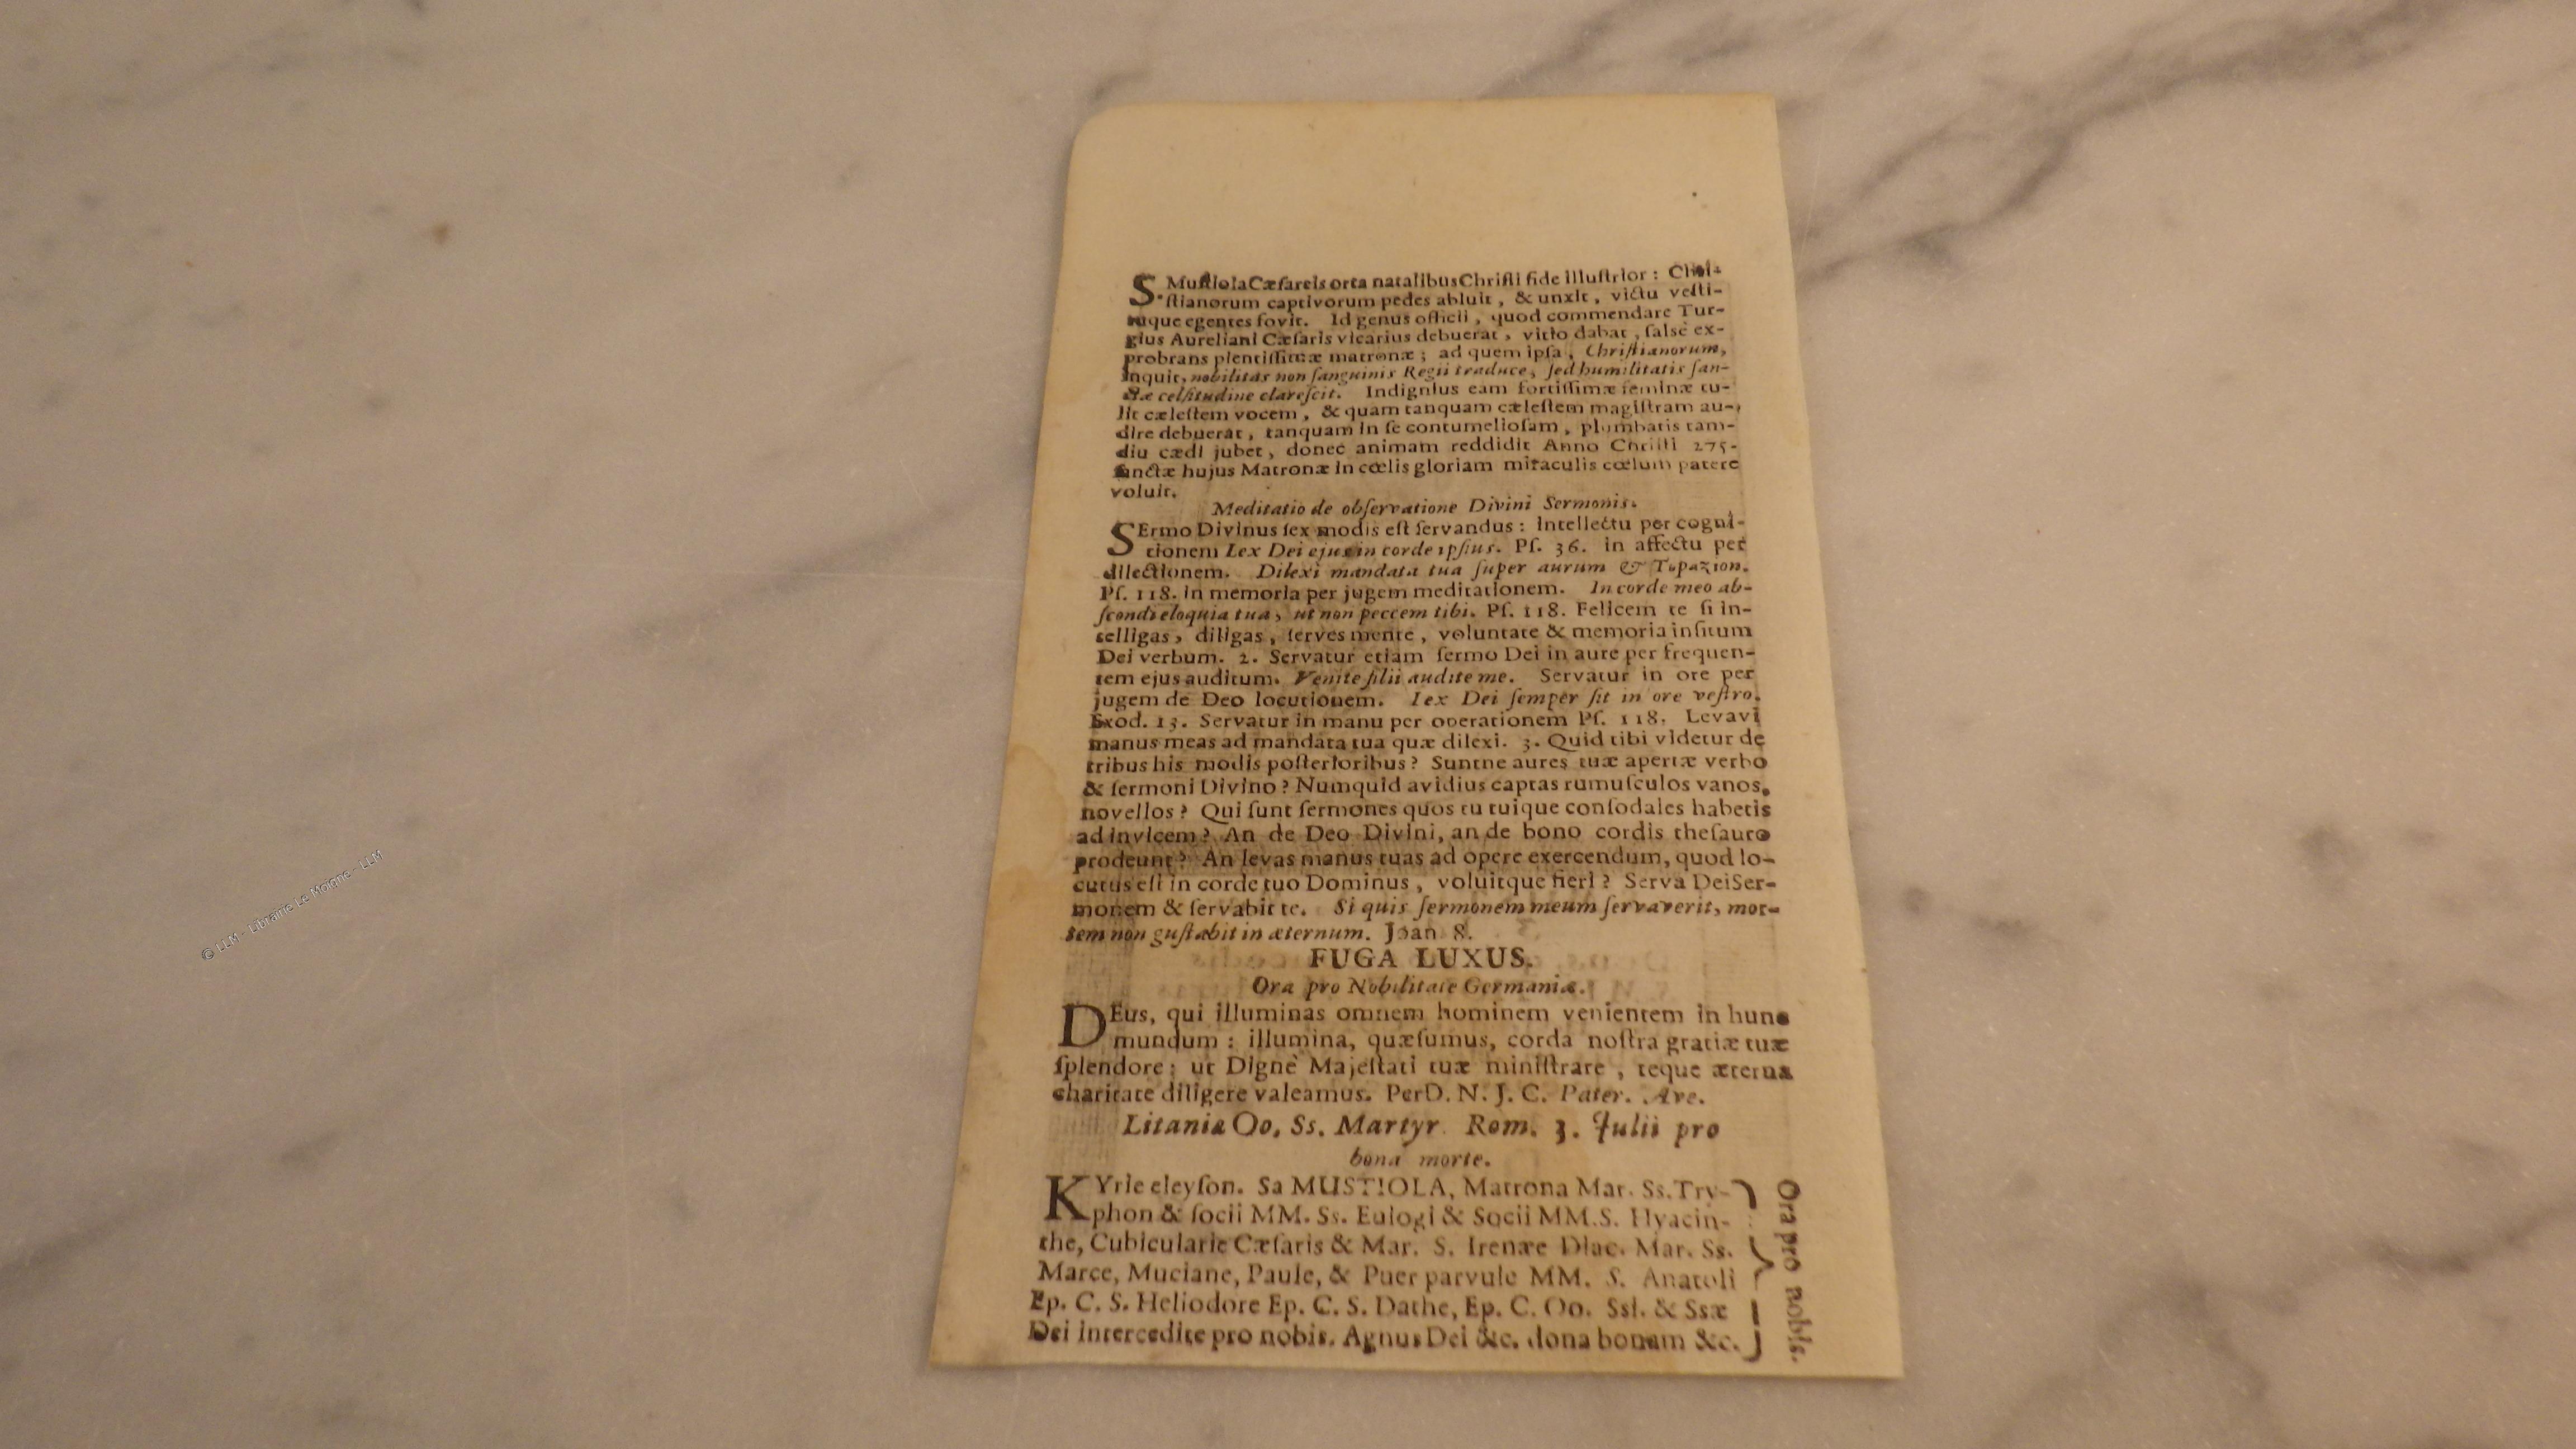 S. Mustiola Cæsareis orta natalibus Christi fide illustrior : Chri-
stianorum captivorum pedes abluit , & unxit , victu vesti-
tuque egentes fovit. Id genus officii , quod commendare Tur-
gius Aureliani Cæsaris vicarius debuerat , vitio dabat , false ex-
probrans pientissimæ matronæ ; ad quem ipsa , Christianorum,
inquit, nobilitas non sanguinis Regii traduce, sed humilitatis san-
ctæ celsitudine clarescit. Indignius eam fortissimæ feminæ tu-
lit cælestem vocem , & quam tanquam cælestem magistram au-
dire debuerat , tanquam in se contumeliosam , plumbatis tam-
diu cædi jubet , donec animam reddidit Anno Christi 275.
sanctæ hujus Matronæ in cœlis gloriam miraculis cœlum patere
voluit.
Meditatio de observatione Divini Sermonis.
SErmo Divinus sex modis est servandus : Intellectu per cogni-
tionem Lex Dei ejus in corde ipsius. Ps. 36. in affectu per
dilectionem. Dilexi mandata tua super aurum & Topazion.
Ps. 118. in memoria per jugem meditationem. In corde meo ab-
scondi eloquia tua, ut non peccem tibi. Ps. 118. Felicem te si in-
telligas , diligas , serves mente , voluntate & memoria insitum
Dei verbum. 2. Servatur etiam sermo Dei in aure per frequen-
tem ejus auditum. Venite filii audite me. Servatur in ore per
jugem de Deo locutionem. Lex Dei semper sit in ore vestro.
Exod. 13. Servatur in manu per operationem Ps. 118. Levavi
manus meas ad mandata tua quæ dilexi. 3. Quid tibi videtur de
tribus his modis posterioribus ? Suntne aures tuæ apertæ verbo
& sermoni Divino ? Numquid avidius captas rumusculos vanos,
novellos ? Qui sunt sermones quos tu tuique consodales habetis
ad invicem ? An de Deo Divini, an de bono cordis thesauro
prodeunt ? An levas manus tuas ad opere exercendum, quod lo-
cutus est in corde tuo Dominus , voluitque fieri ? Serva Dei Ser-
monem & servabit te. Si quis sermonem meum servaverit, mor-
tem non gustabit in æternum. Joan 8.
FUGA LUXUS.
Ora pro Nobilitate Germaniæ.
DEus, qui illuminas omnem hominem venientem in hunc
mundum : illumina, quæsumus, corda nostra gratiæ tuæ
splendore : ut Dignè Majestati tuæ ministrare , teque æterna
charitate diligere valeamus. Per D. N. J. C. Pater. Ave.
Litania Oo. Ss. Martyr Rom. 3. Julii pro
bona morte.
KYrie eleyson. Sa MUSTIOLA, Matrona Mar. Ss. Try-
phon & socii MM. Ss. Eulogi & Socii MM. S. Hyacin-
the, Cubicularie Cæsaris & Mar. S. Irenæe Diac. Mar. Ss.
Marce, Muciane, Paule, & Puer parvule MM. S. Anatoli
Ep. C. S. Heliodore Ep. C. S. Dathe, Ep. C. Oo. Ssi. & Ssæ
Dei intercedite pro nobis. Agnus Dei &c. dona bonam &c.
Ora pro nobis.
© LLM - Librairie Le Moigne - LLM